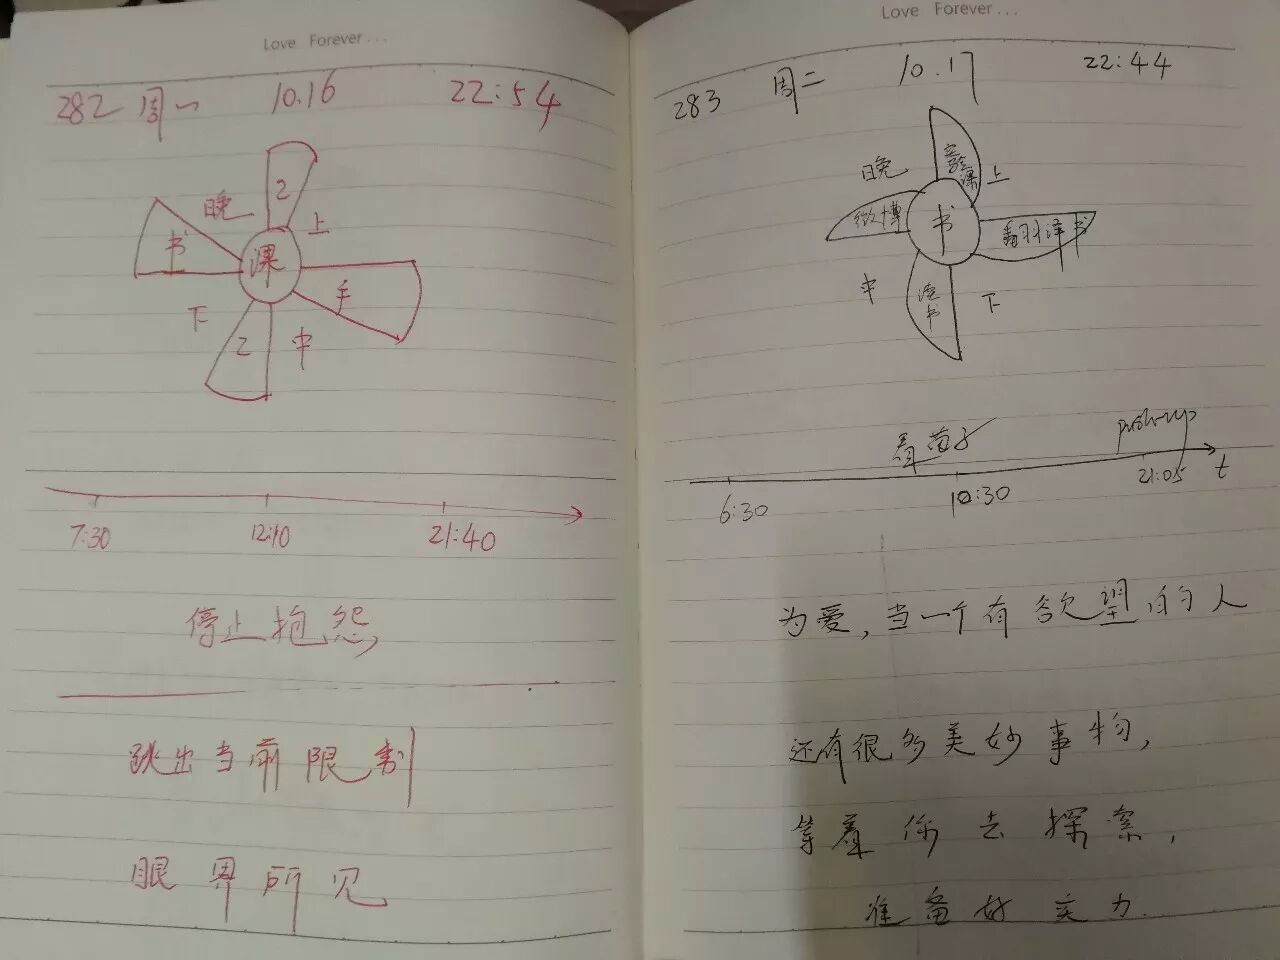 Love Forever...
282 周一 10.16 22:54
2
晚
上
书
课
手
下
2
中
7:30 12:10 21:40
停止抱怨,
跳出当前限制
眼界所见
Love Forever...
283 周二 10.17 22:44
晚
实验课
上
微博
书
翻译书
中
还书
下
看笛子
push-up
6:30 10:30 21:05 t
为爱,当一个有欲望的人
还有很多美妙事物,
等着你去探索,
准备好实力.